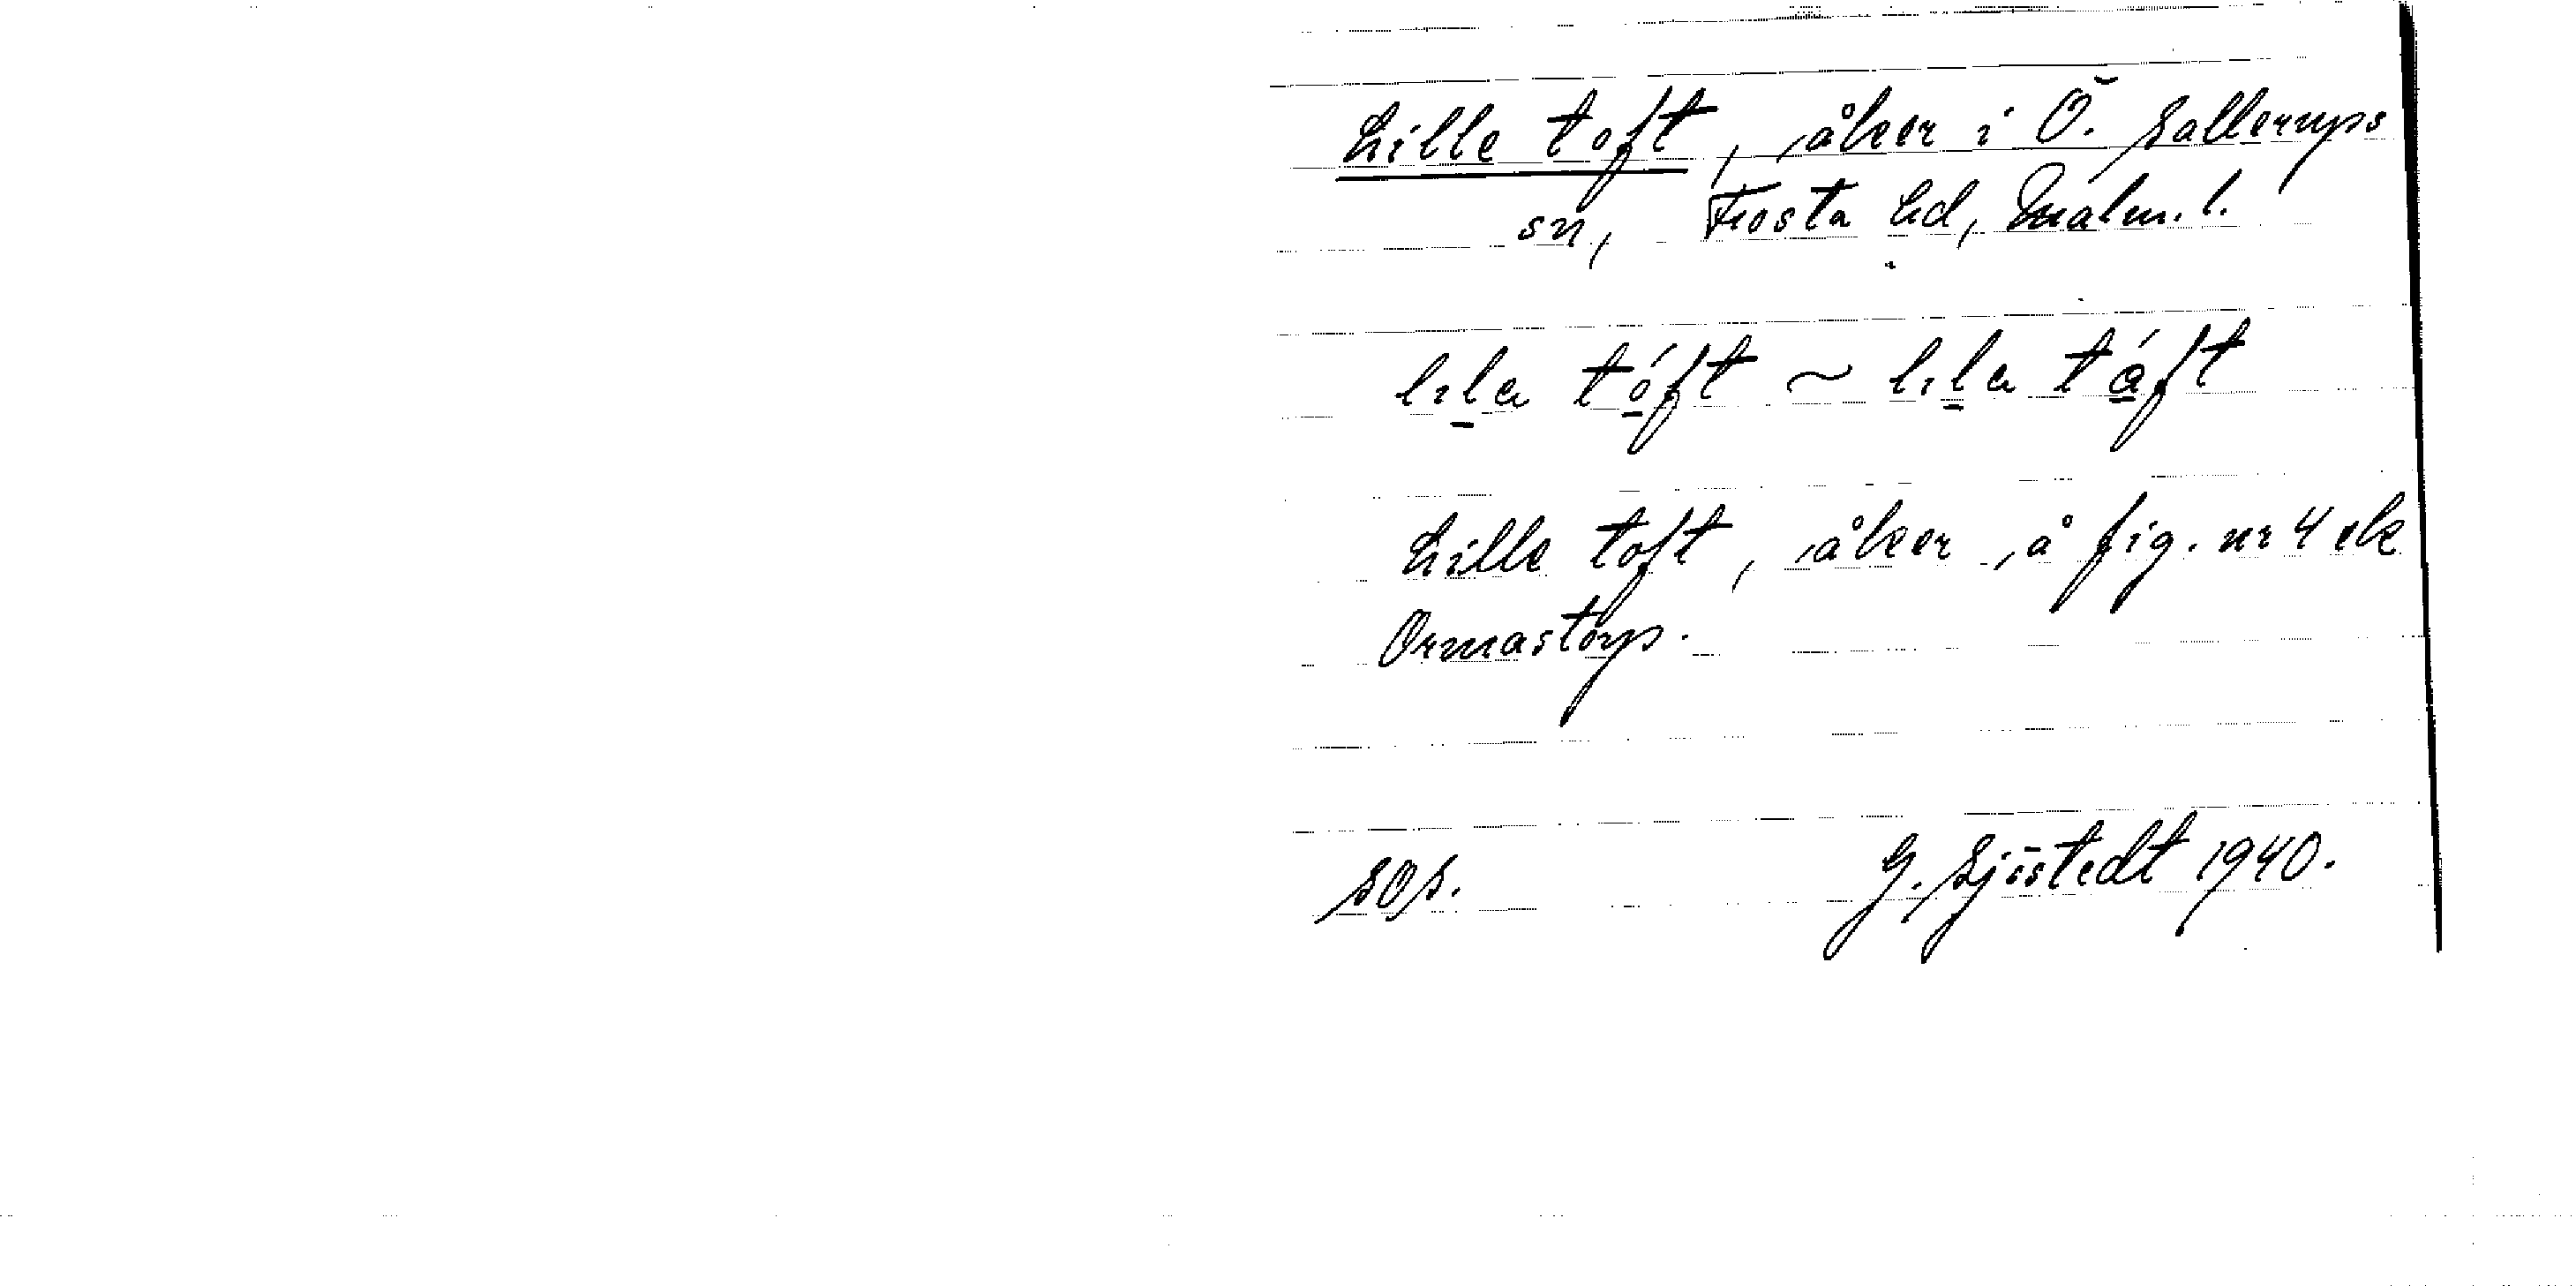 Lille toft, åker i Ö. Sallerups
sn, Frosta hd, Malm. l.
lıl̠a tó̠ft ~ lıl̠a tá̠ft
Lille toft, åker å fig. nr 4 ek
Ormastorp.
SOS. G. Sjöstedt 1940.